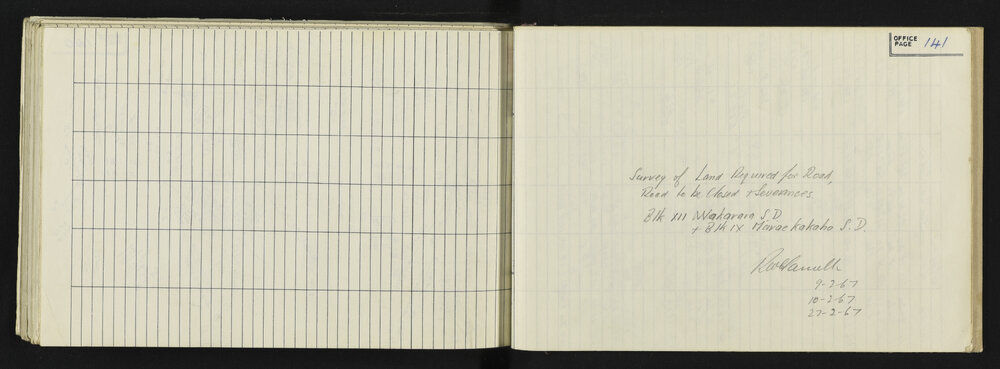 OFFICE
PAGE 141
Survey of Land Required for Road,
Road to be Closed + Severances
Blk XIII Waharara S.D.
+ Blk IX Maraekakaho S.D.
9-2-67
10-2-67
27-2-67